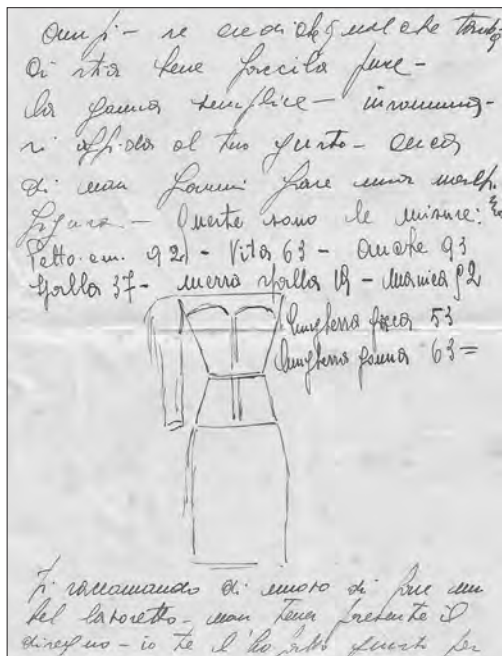 ampi - se credi che quel che
ci stia bene faccila pure -
la gonna semplice - insomma -
si affida al tuo gusto - cerca
di non farmi fare una
figura. - Queste sono le misure:
Petto. cm. 92 - Vita 63 - Anche 93
Spalla 37 - mezza spalla - Manica
lunghezza giacca 53
lunghezza gonna 63 =
Ti raccomando di nuovo di fare un
bel lavoretto - non tener presente il
disegno - io te l'ho fatto per